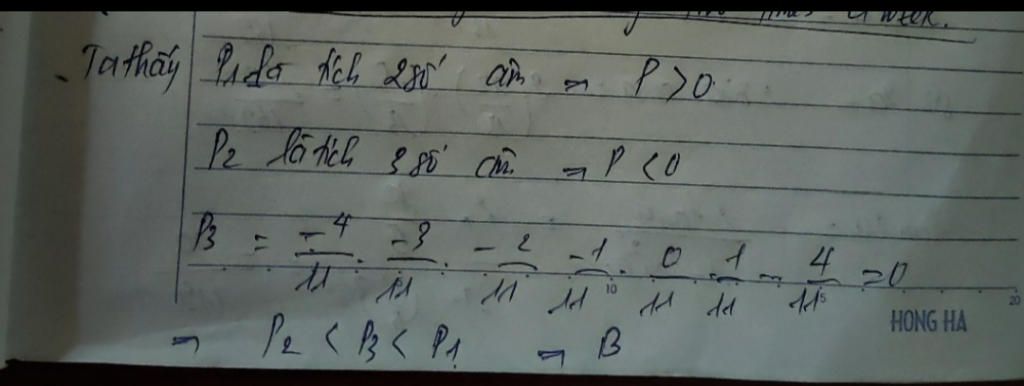 times a week.
Ta thấy P1 là tích 2 số âm ⇒ P > 0
P2 là tích 3 số âm ⇒ P < 0
P3 = -4/11 . -3/11 . -2/11 . -1/11 . 0/11 . 1/11 - 4/11 = 0
⇒ P2 < P3 < P1 ⇒ B
10 5 20
HONG HA